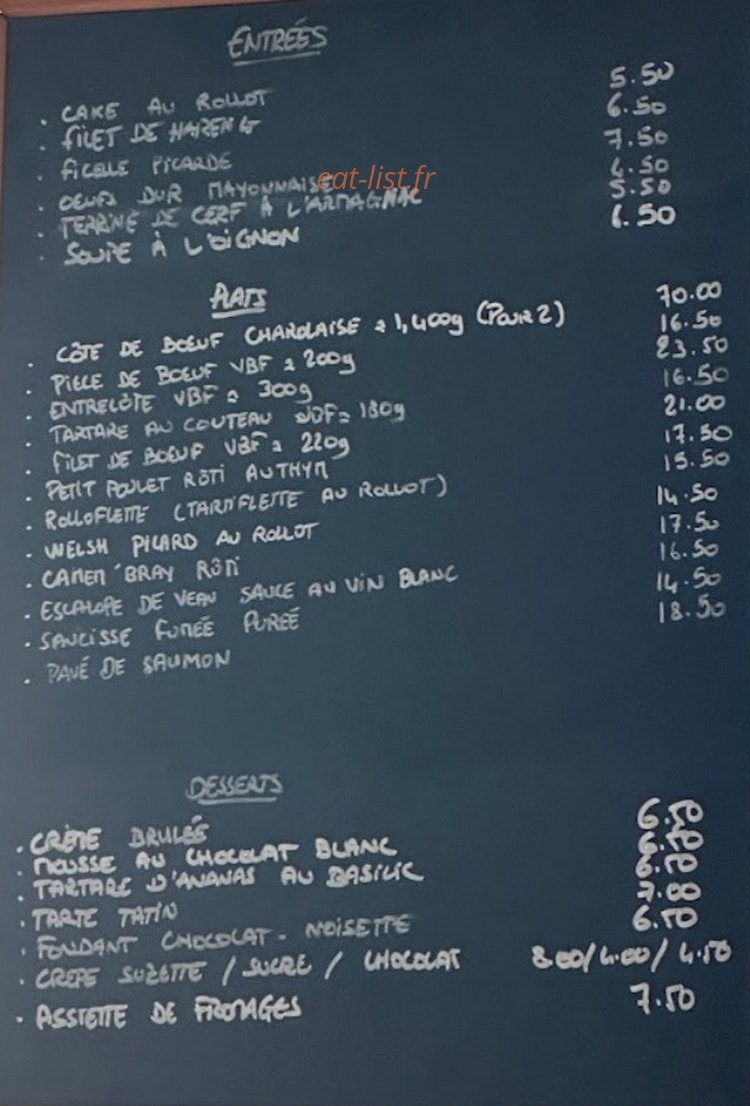 ENTRÉES
. CAKE AU ROLLOT 5.50
. FILET DE HARENG 6.50
. FICELLE PICARDE 7.50
. OEUFS DUR MAYONNAISE 4.50
eat-list.fr
. TERRINE DE CERF À L'ARMAGNAC 5.50
. SOUPE À L'OIGNON 6.50
PLATS
. CÔTE DE BOEUF CHAROLAISE ± 1,400g (POUR 2) 70.00
. PIECE DE BOEUF VBF ± 200g 16.50
. ENTRECÔTE VBF ± 300g 23.50
. TARTARE AU COUTEAU VBF ± 180g 16.50
. FILET DE BOEUF VBF ± 220g 21.00
. PETIT POULET RÔTI AU THYM 17.50
. ROLLOFLETTE (TARTIFLETTE AU ROLLOT) 15.50
. WELSH PICARD AU ROLLOT 14.50
. CAMEM'BRAY RÔTI 17.50
. ESCALOPE DE VEAU SAUCE AU VIN BLANC 16.50
. SAUCISSE FUMÉE PURÉE 14.50
. PAVÉ DE SAUMON 18.50
DESSERTS
. CRÈME BRULÉE 6.50
. MOUSSE AU CHOCOLAT BLANC 6.50
. TARTARE D'ANANAS AU BASILIC 6.50
. TARTE TATIN 7.00
. FONDANT CHOCOLAT - NOISETTE 6.50
. CREPE SUZETTE / SUCRE / CHOCOLAT 8.00/4.00/4.50
. ASSIETTE DE FROMAGES 7.50